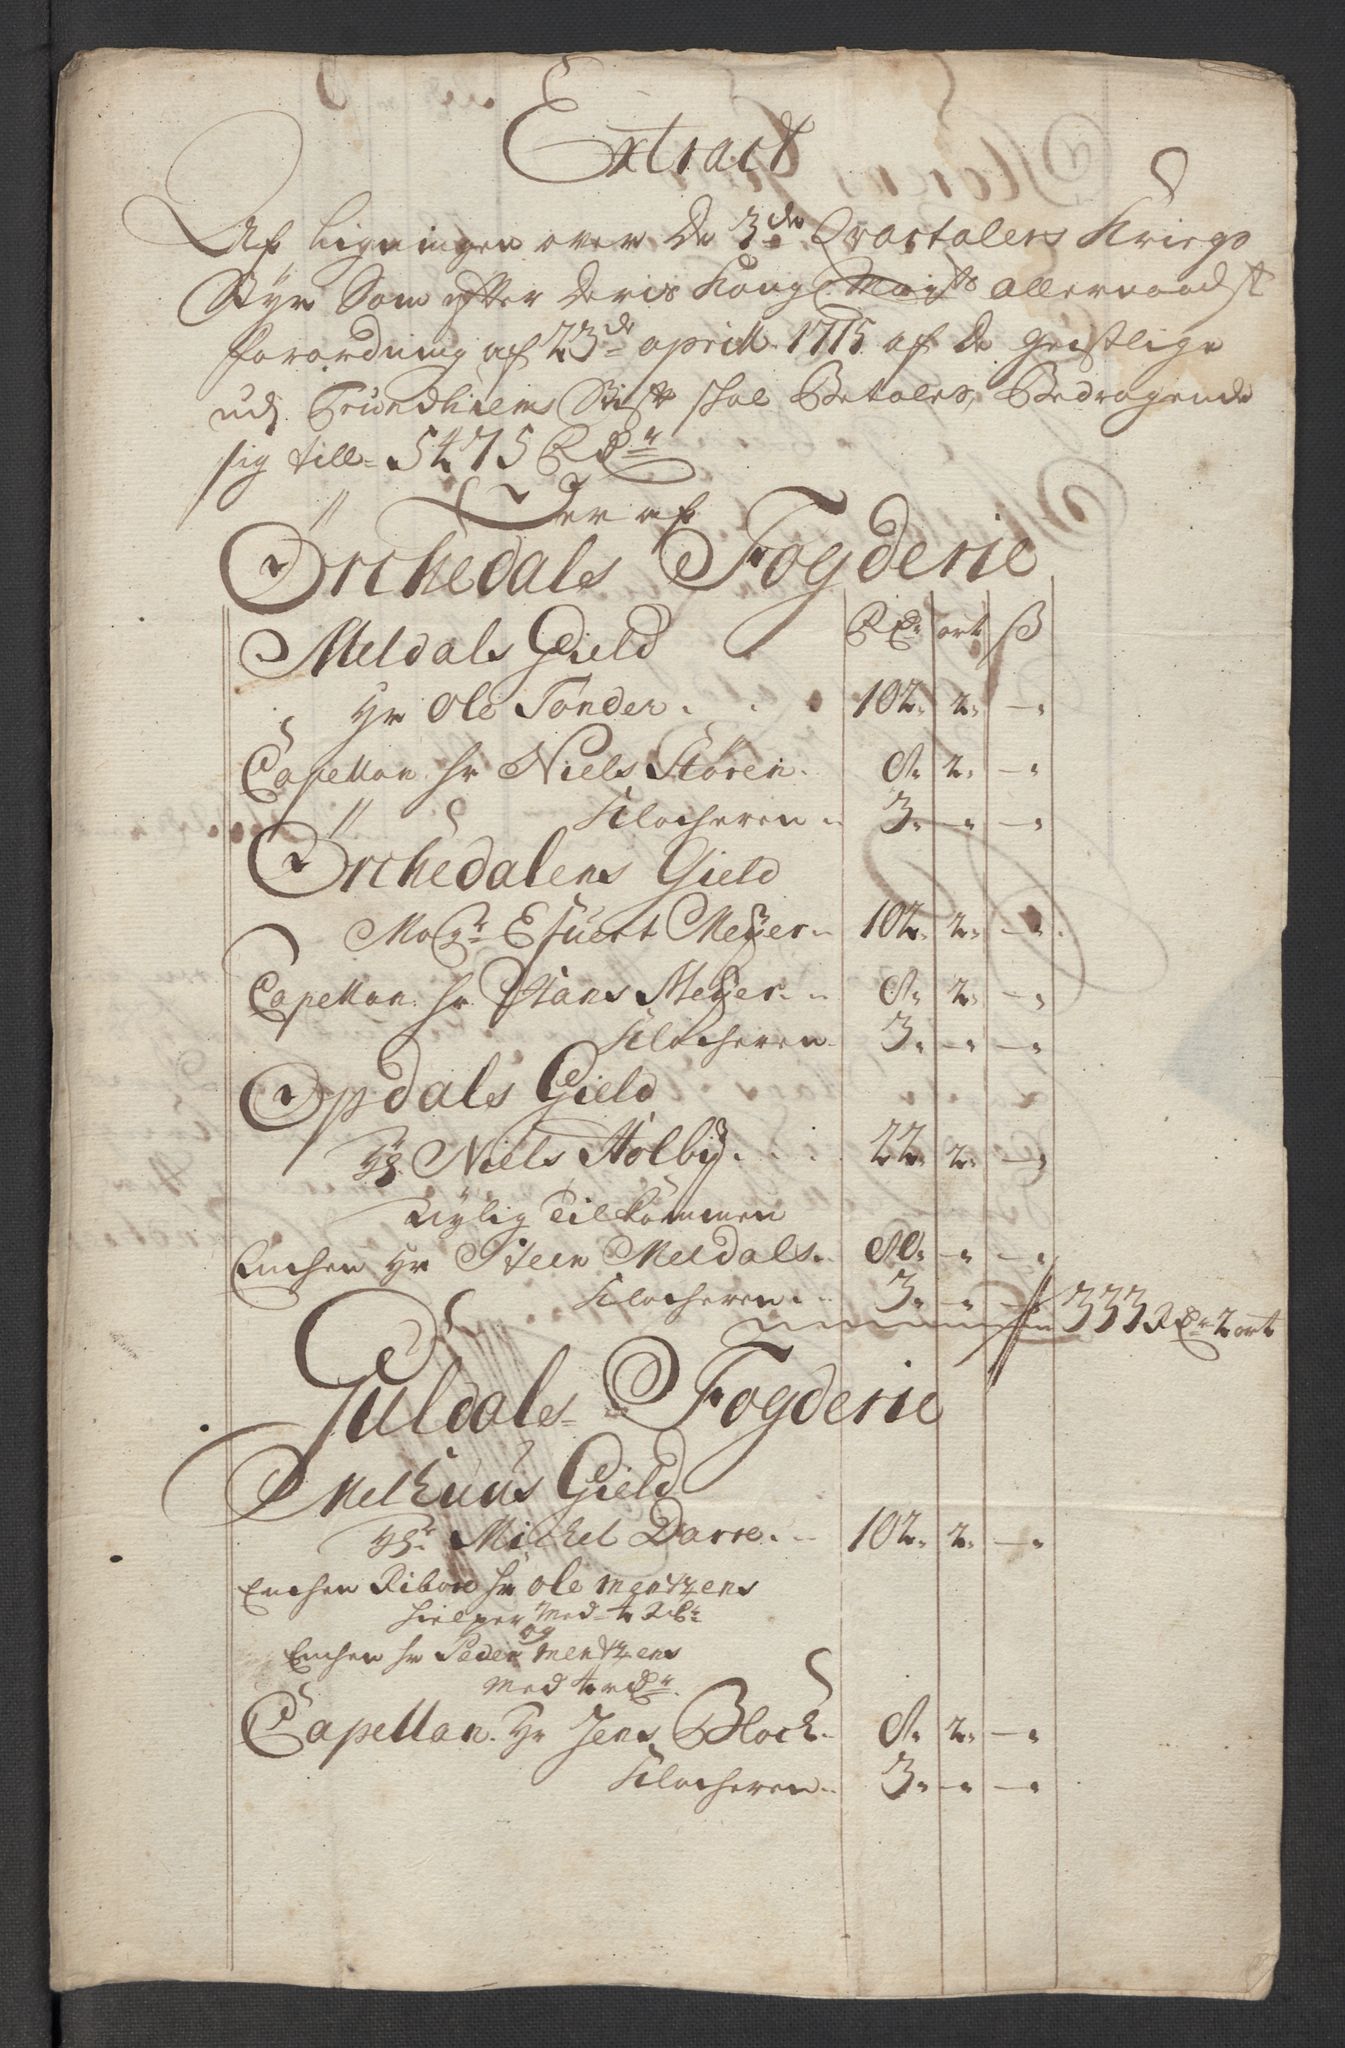 Extract
Af Ligningen over De 3de Qvartalers Kriegs
Styr Som efter Deris Kongl Mayts allernaadst
forordning af 23de aprill 1715 af De geistlige
udj Trundhiems Stift skal Betales, Bedragende
sig till 5475 Rdr
Der af
Örchedals Fogderie
Rdr ort ß
Meldals Gield
Hr Ole Tonder 102 2 —
Capellan hr Niels Stören 8 2 —
Klocheren 3 — —
Örchedalens Gield
Magr Efuert Meÿer 102 2 —
Capellan hr Hans Meÿer 8 2 —
Klocheren 3 — —
Opdals Gield
Hr Niels Stolbÿ 22 2 —
Nylig Tilkommen
Enchen Hr Steen Meldals 80 — —
Klocheren 3 — — 333 Rdr 2 ort
Guldals Fogderie
Melhuus Gield
Hr Michel Darre 102 2 —
Enchen hr Ole Mentzens
hielper Med
og
Enchen hr Peder Mentzens
Med
Capellan Hr Jens Block 8 2 —
Klocheren 3 — —